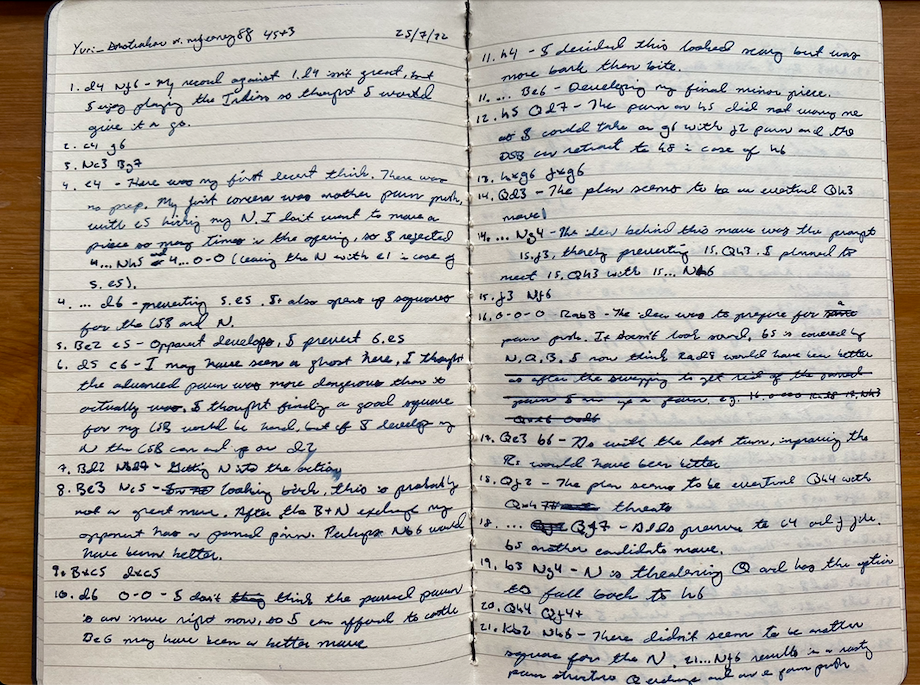 Yuri_Anotrahov v. mfearey88 45+3 25/7/22
1. d4 Nf6 - My record against 1.d4 isn't great, but
I enjoy playing the Indians so thought I would
give it a go.
2. c4 g6
3. Nc3 Bg7
4. e4 - Here was my first decent think. There was
no prep. My first concern was another pawn push,
with e5 hitting my N. I don't want to move a
piece so many times in the opening, so I rejected
4...Nh5 4...0-0 (leaving the N with e1 in case of
5. e5).
4. ... d6 - preventing 5.e5. It also opens up squares
for the LSB and N.
5. Be2 e5 - Opponent develops, I prevent 6.e5
6. d5 c6 - I may have seen a ghost here, I thought
the advanced pawn was more dangerous than it
actually was, I thought finding a good square
for my LSB would be hard, but if I develop my
N the LSB can end up on d7
7. Bd2 Nbd7 - Getting N into the action
8. Be3 Nc5 - looking back, this is probably
not a great move. After the B+N exchange my
opponent has a passed pawn. Perhaps Nb6 would
have been better.
9. Bxc5 dxc5
10. d6 0-0 - I don't think the passed pawn
is an issue right now, so I can afford to castle
Be6 may have been a better move
11. h4 - I decided this looked scary but was
more bark than bite.
11. ... Be6 - Developing my final minor piece.
12. h5 Qd7 - The pawn on h5 did not worry me
as I could take on g6 with f7 pawn and the
DSB can retreat to h8 in case of h6
13. hxg6 fxg6
14. Qd3 - The plan seems to be an eventual Qh3
move
14. ... Ng4 - The idea behind this move was to prompt
15.f3, thereby preventing 15.Qh3. I planned to
meet 15.Qh3 with 15... Nh6
15. f3 Nf6
16. 0-0-0 Rab8 - The idea was to prepare for a
pawn push. It doesn't look sound, b5 is covered by
N, Q, B. I now think Rad8 would have been better
as after the swapping to get rid of the passed
pawn I am up a pawn, e.g. 16. 0-0-0 Rad8 17. Nh3
17. Qe3 b6 - As with the last turn, improving the
Rs would have been better
18. Qf2 - The plan seems to be eventual Qh4 with
threats
18. ... Qf7 - Adds pressure to c4 and f file.
b5 another candidate move.
19. b3 Ng4 - N is threatening Q and has the option
to fall back to h6
20. Qh4 Qf4+
21. Kb2 Nh6 - There didn't seem to be another
square for the N. 21...Nf6 results in a nasty
pawn structure Q exchange and an e pawn push